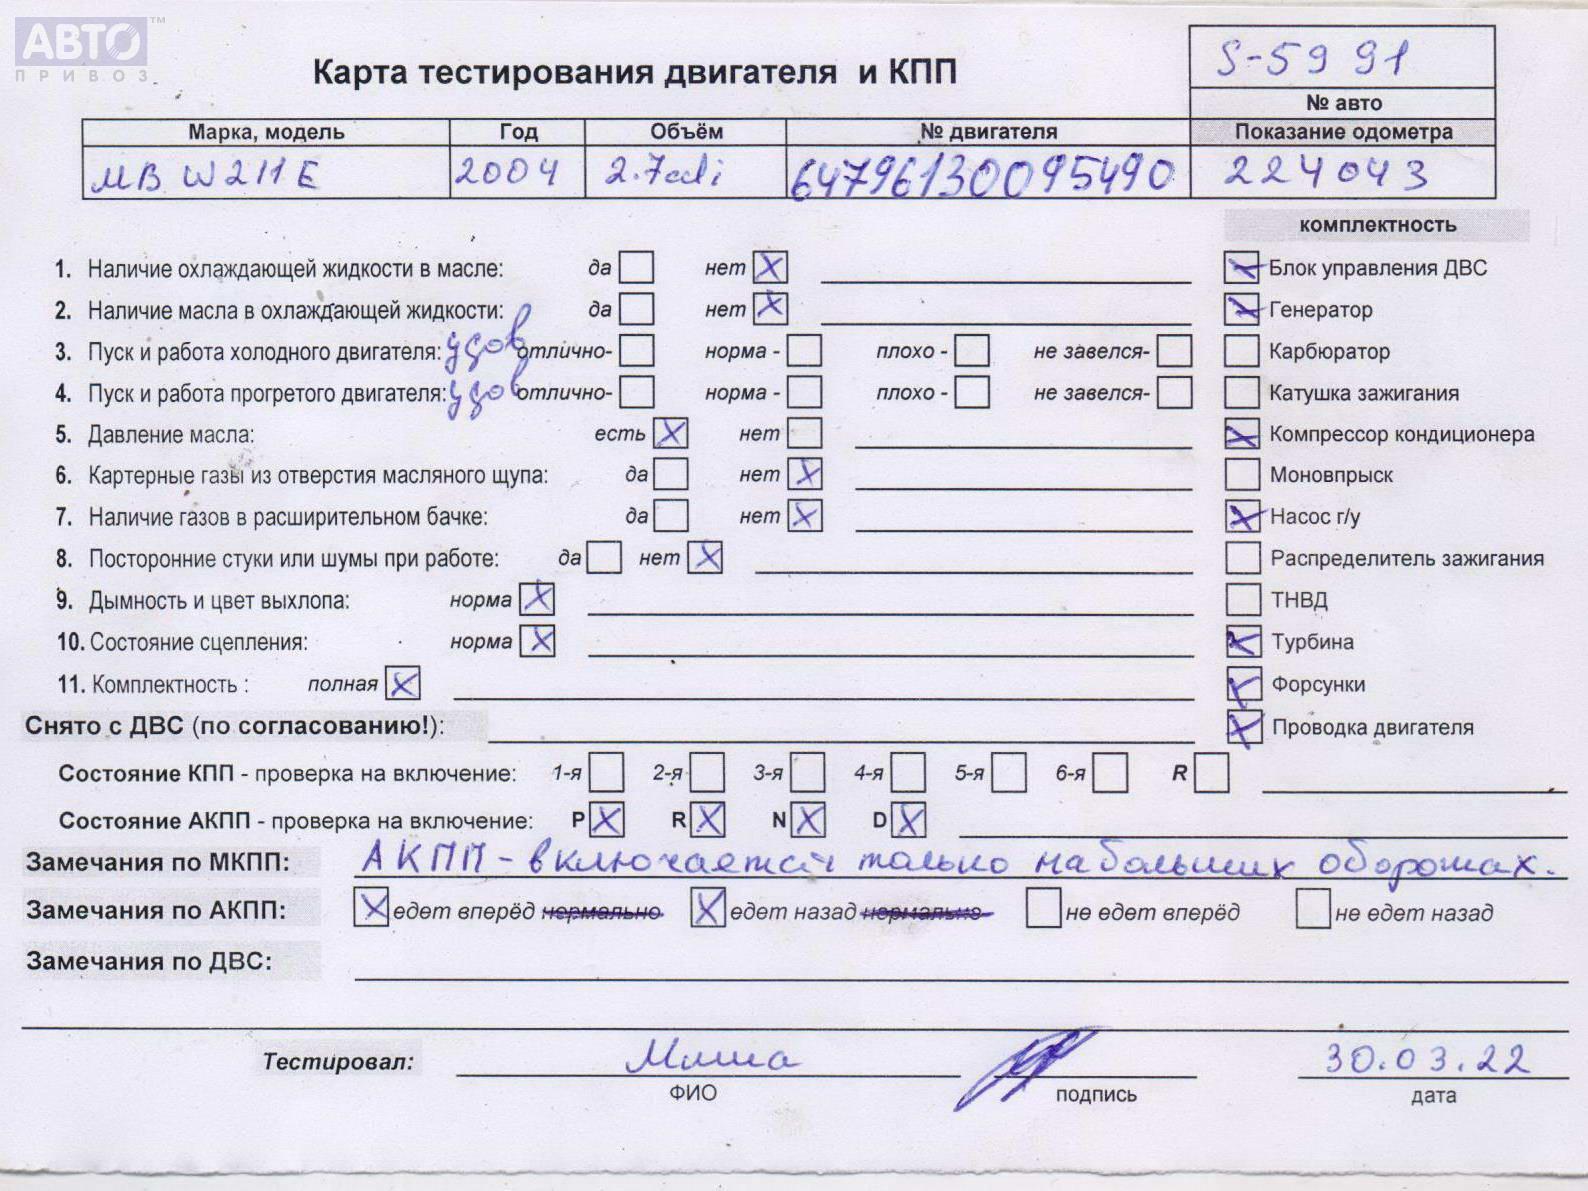 АВТО™
ПРИВОЗ
S-5991
Карта тестирования двигателя и КПП
№ авто
Марка, модель Год Объём № двигателя Показание одометра
МВ W211E 2004 2.7cdi 64796130095490 224043
комплектность
1. Наличие охлаждающей жидкости в масле: да нет X Блок управления ДВС
2. Наличие масла в охлаждающей жидкости: да нет X Генератор
3. Пуск и работа холодного двигателя: удов отлично- норма - плохо - не завелся- Карбюратор
4. Пуск и работа прогретого двигателя: удов отлично- норма - плохо - не завелся- Катушка зажигания
5. Давление масла: есть X нет Компрессор кондиционера
6. Картерные газы из отверстия масляного щупа: да нет X Моновпрыск
7. Наличие газов в расширительном бачке: да нет X Насос г/у
8. Посторонние стуки или шумы при работе: да нет X Распределитель зажигания
9. Дымность и цвет выхлопа: норма X ТНВД
10. Состояние сцепления: норма X Турбина
11. Комплектность : полная X Форсунки
Снято с ДВС (по согласованию!): Проводка двигателя
Состояние КПП - проверка на включение: 1-я 2-я 3-я 4-я 5-я 6-я R
Состояние АКПП - проверка на включение: P X R X N X D X
Замечания по МКПП: АКПП - включается только на больших оборотах.
Замечания по АКПП: X едет вперёд нормально X едет назад нормально не едет вперёд не едет назад
Замечания по ДВС:
Тестировал: Миша 30.03.22
ФИО подпись дата